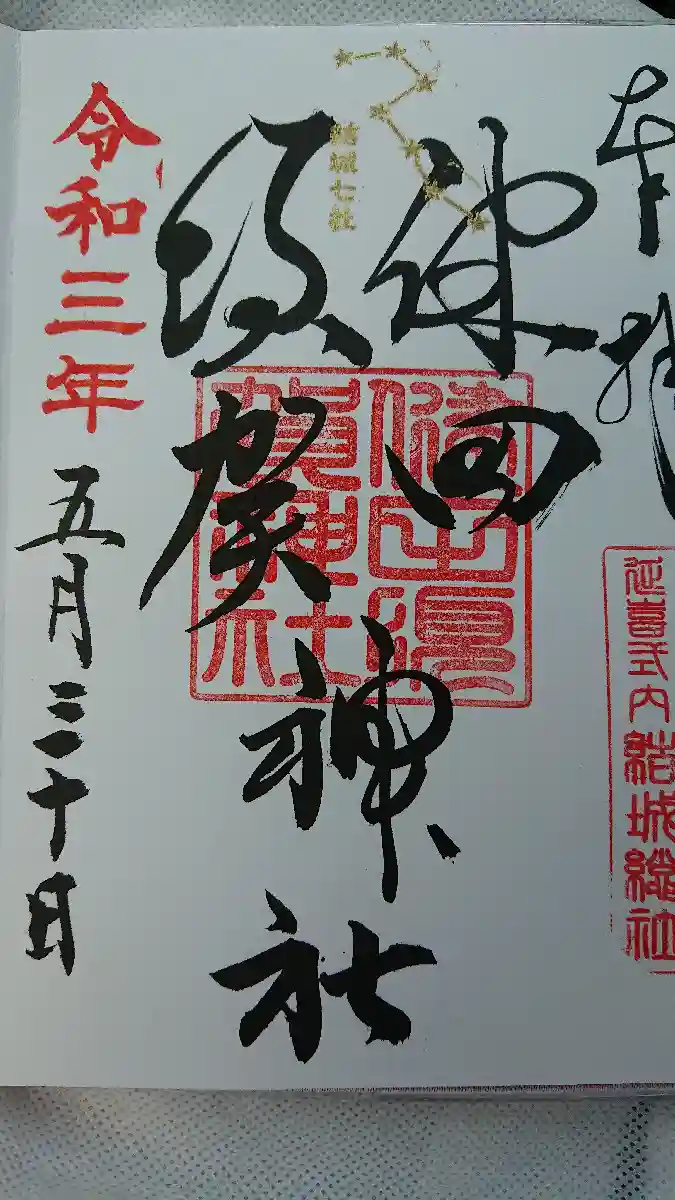 奉拝
延喜式内
結城總社
結城七社
健田
須賀
神社
健田須
賀神社
令和三年
五月三十日